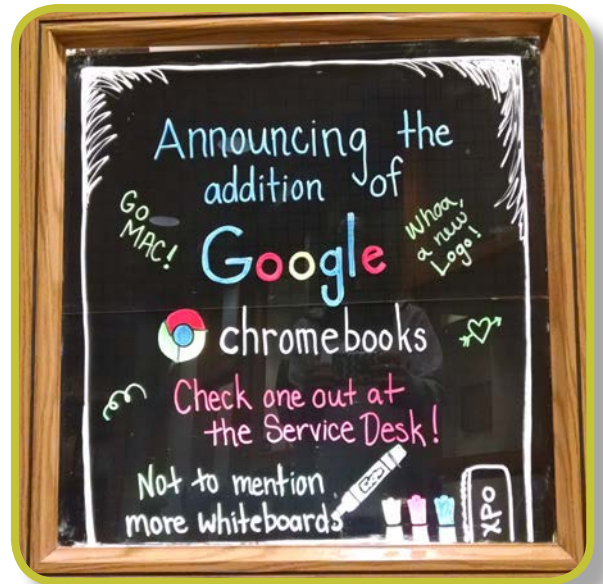 Announcing the
addition of
Go
MAC!
Whoa,
a new
Logo!
Google
chromebooks
Check one out at
the Service Desk!
Not to mention
more whiteboards
XPO